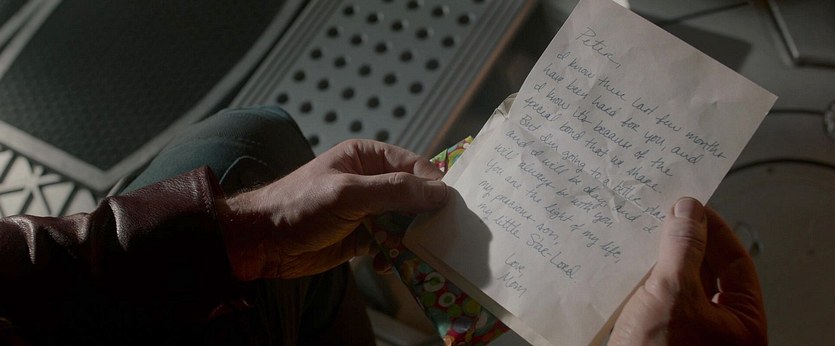 Peter,
I know these last few months
have been hard for you, and
I know its because of the
special bond that we share.
But I'm going to a better place
and I will be okay. And I
will always be with you.
You are the light of my life,
my precious son,
my little Star-Lord
Love,
Mom